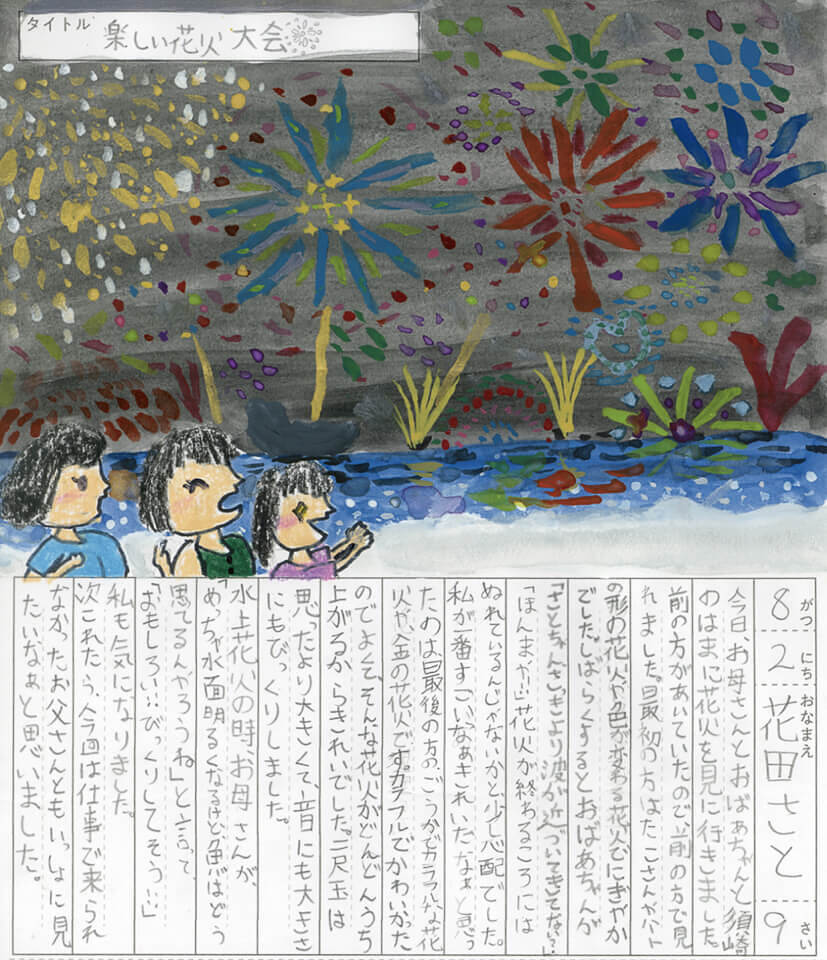 タイトル
楽しい花火大会
8がつ2にち
おなまえ 花田さと
9さい
今日、お母さんとおばあちゃんと須崎
のはまに花火を見に行きました。
前の方があいていたので、前の方で見
れました。最初の方はたこさんやハート
の形の花火や色が変わる花火でにぎやか
でした。しばらくするとおばあちゃんが
「さとちゃん、さっきより波が近づいてきてない?」
「ほんまや!!」花火が終わるころには
ぬれているんじゃないかと少し心配でした。
私が一番すごいなぁきれいだなぁと思っ
たのは、最後の方のごうかでカラフルな花
火や、金の花火です。カラフルでかわいかった
のでよくて、そんな花火がどんどんうち
上がるからきれいでした。二尺玉は
思ったより大きくて、音にも大きさ
にもびっくりしました。
水上花火の時、お母さんが、
「めっちゃ水面明るくなるけど、魚はどう
思てるんやろうね」と言って
「おもしろい!!びっくりしてそう!!」
私も気になりました。
次これたら、今回は仕事で来られ
なかったお父さんともいっしょに見
たいなぁと思いました。